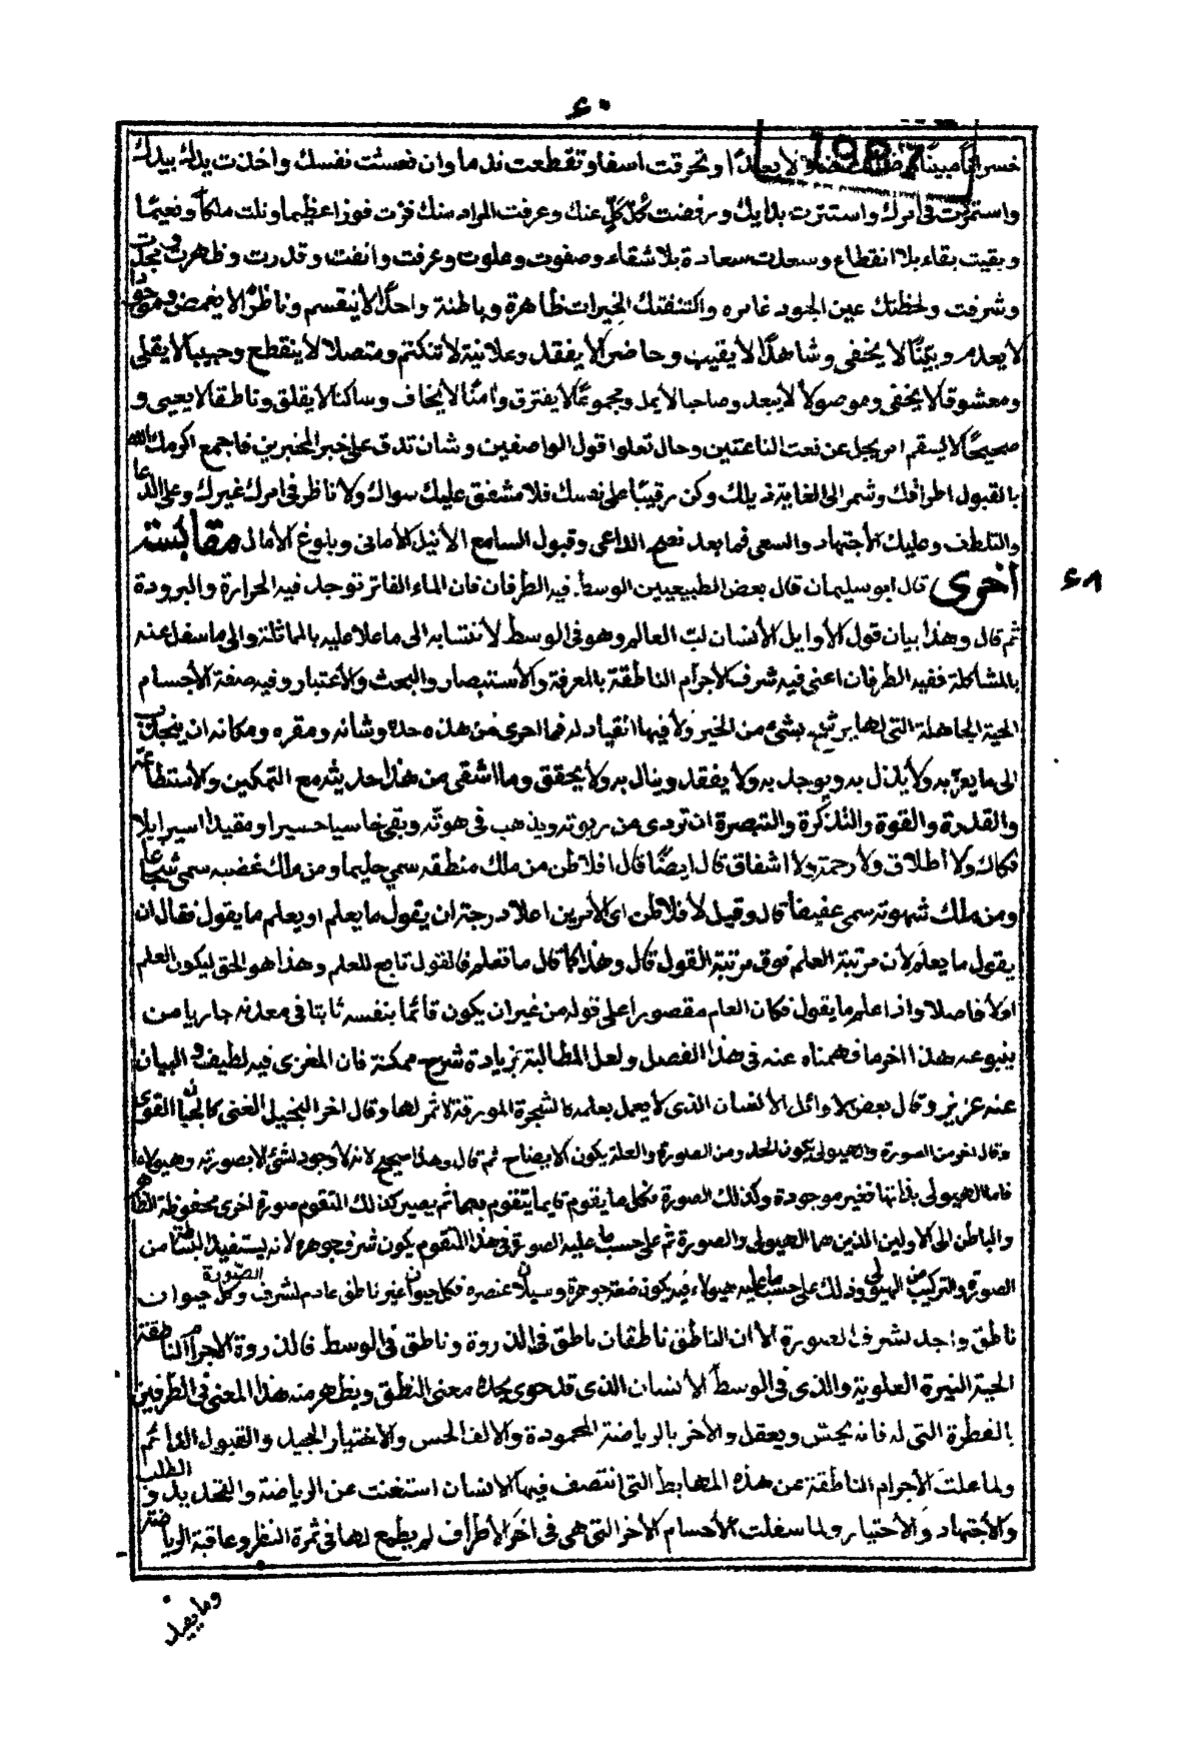 ٤٠
خسرانا مبينا وضللت ضلالا بعيدا وتحرقت اسفا وتقطعت ندما وان نعشت نفسك واخذت يدك بيدك
واستمررت في امرك واستنرت بذاتك ورفضت كل كل عنك وعرفت المراد منك فزت فوزا عظيما ونلت ملكا ونعيما
وبقيت بقاء بلا انقطاع وسعدت سعادة بلا شقاء وصفوت وعلوت وعرفت وانفت وقدرت وظهرت ووجدت
وشرفت ولحظتك عين الجود غامره واكتنفتك الخيرات ظاهرة وباطنة واحدا لا ينقسم وناظرا لا يغمض وموجودا
لا يعدم وبيّنا لا يخفى وشاهدا لا يغيب وحاضرا لا يفقد وعلانية لا تنكتم ومتصلا لا ينقطع وحبيبا لا يقلى
ومعشوقا لا يخفى وموصولا لا يبعد وصاحبا لا يمل ومجموعا لا يفترق وامنا لا يخاف وساكنا لا يقلق وناطقا لا يعيى و
صحيحا لا يسقم امر يجل عن نعت الناعتين وحال تعلوا قول الواصفين وشان تدق على خبر المخبرين فاجمع اكرمك الله
بالقبول اطرافك وشمر الى الغاية ذيلك وكن رقيبا على نفسك فلا مشفق عليك سواك ولا ناظر في امرك غيرك وعلي الدعا
والتلطف وعليك الاجتهاد والسعى فما بعد نصح الداعى وقبول السامع الا نيل الامانى وبلوغ الامال مقابسة
اخرى قال ابو سليمان قال بعض الطبيعيين الوسط فيه الطرفان فان الماء الفاتر توجد فيه الحرارة والبرودة
٤٨
ثم قال وهذا بيان قول الاوايل الانسان لبّ العالم وهو في الوسط لانتسابه الى ما علا عليه بالمماثلة والى ما سفل عنه
بالمشاكلة ففيه الطرفان اعنى فيه شرف الاجرام الناطقة بالمعرفة والاستبصار والبحث والاعتبار وفيه صفة الاجسام
الحية الجاهلة التى لها ترشح بشئ من الخير ولا فيها انقياد له فما احرى من هذه حده وشانه ومقره ومكانه ان ينجذب
الى ما يعز به ولا يذل به ويوجد به ولا يفقد وينال به ولا يخفق وما اشقى من هذا حديثه مع التمكين والاستطاعة
والقدرة والقوة والتذكرة والتبصرة ان تردى من ربوته ويذهب في هوته وبقى خاسيا حسيرا ومقيدا اسيرا بلا
فكاك ولا اطلاق ولا رحمة ولا اشفاق قال ايضا قال افلاطن من ملك منطقه سمي حليما ومن ملك غضبه سمى شجاعا
ومن ملك شهوته سمى عفيفا قال وقيل لافلاطن اى الامرين اعلا درجة ان يقول ما يعلم او يعلم ما يقول فقال ان
يقول ما يعلم لان مرتبة العلم فوق مرتبة القول قال وهذا كما قال ما تعلم فالقول تابع للعلم وهذا هو الحق ليكون العلم
اولا فاصلا واذا علم ما يقول فكان العلم مقصورا على قوله من غير ان يكون قائما بنفسه ثابتا في معدنه جاريا من
ينبوعه هذا اخر ما فهمناه عنه في هذا الفصل ولعل المطالبة بزيادة شرح ممكنة فان المغزى فيه لطيف والبيان
عنه عزيز وقال بعض الاوائل الانسان الذى لا يعمل بعلمه كالشجرة المورقة لا ثمر لها وقال اخر البخيل الغنى كالجبان القوى
وقال اخر من الصورة والهيولى يكون الحد ومن الصورة والعلة يكون الايضاح ثم قال وهذا صحيح لانه لا وجود لشئ الا بصورته وهيولاه
فاما الهيولى بذاتها فغير موجودة وكذلك الصورة فكل ما يقوم فايما يتقوم بهما ثم يصير كذلك المتقوم صورة اخرى محفوظة الظاهر
والباطن الى الاولين الذين هما الهيولى والصورة ثم على حسب ما عليه الصورة في هذا المتقوم يكون شرف جوهره لانه يستفيد البساطة من
الصورة والتركيب من الهيولى وذلك على حسب ما عليه هيولاه فيه يكون ضعة جوهرة وسيلان عنصره فكل حيوان غير ناطق عادم لشرف الصورة وكل حيوان
ناطق واجد لشرف الصورة الا ان الناطق ناطقان ناطق في الذروة وناطق في الوسط فالذروة الاجرام الناطقة
الحية النيرة العلوية والذى في الوسط الانسان الذى قد حوى بحده معنى النطق ويظهر منه هذا المعنى في الطرفين
بالفطرة التى له فانه يحس ويعقل والاخر بالرياضة المحمودة والالف الحس والاختيار الجميل والقبول الدائم
ولما علت الاجرام الناطقة عن هذه المهابط التى انتصف فيها الانسان استغنت عن الرياضة والتجديد والطلب
والاجتهاد والاختيار ولما سفلت الاجسام الاخر التى هي في اخر الاطراف لم يطمع لها في ثمرة النظر وعاقبة الرياضة
وما يفيد